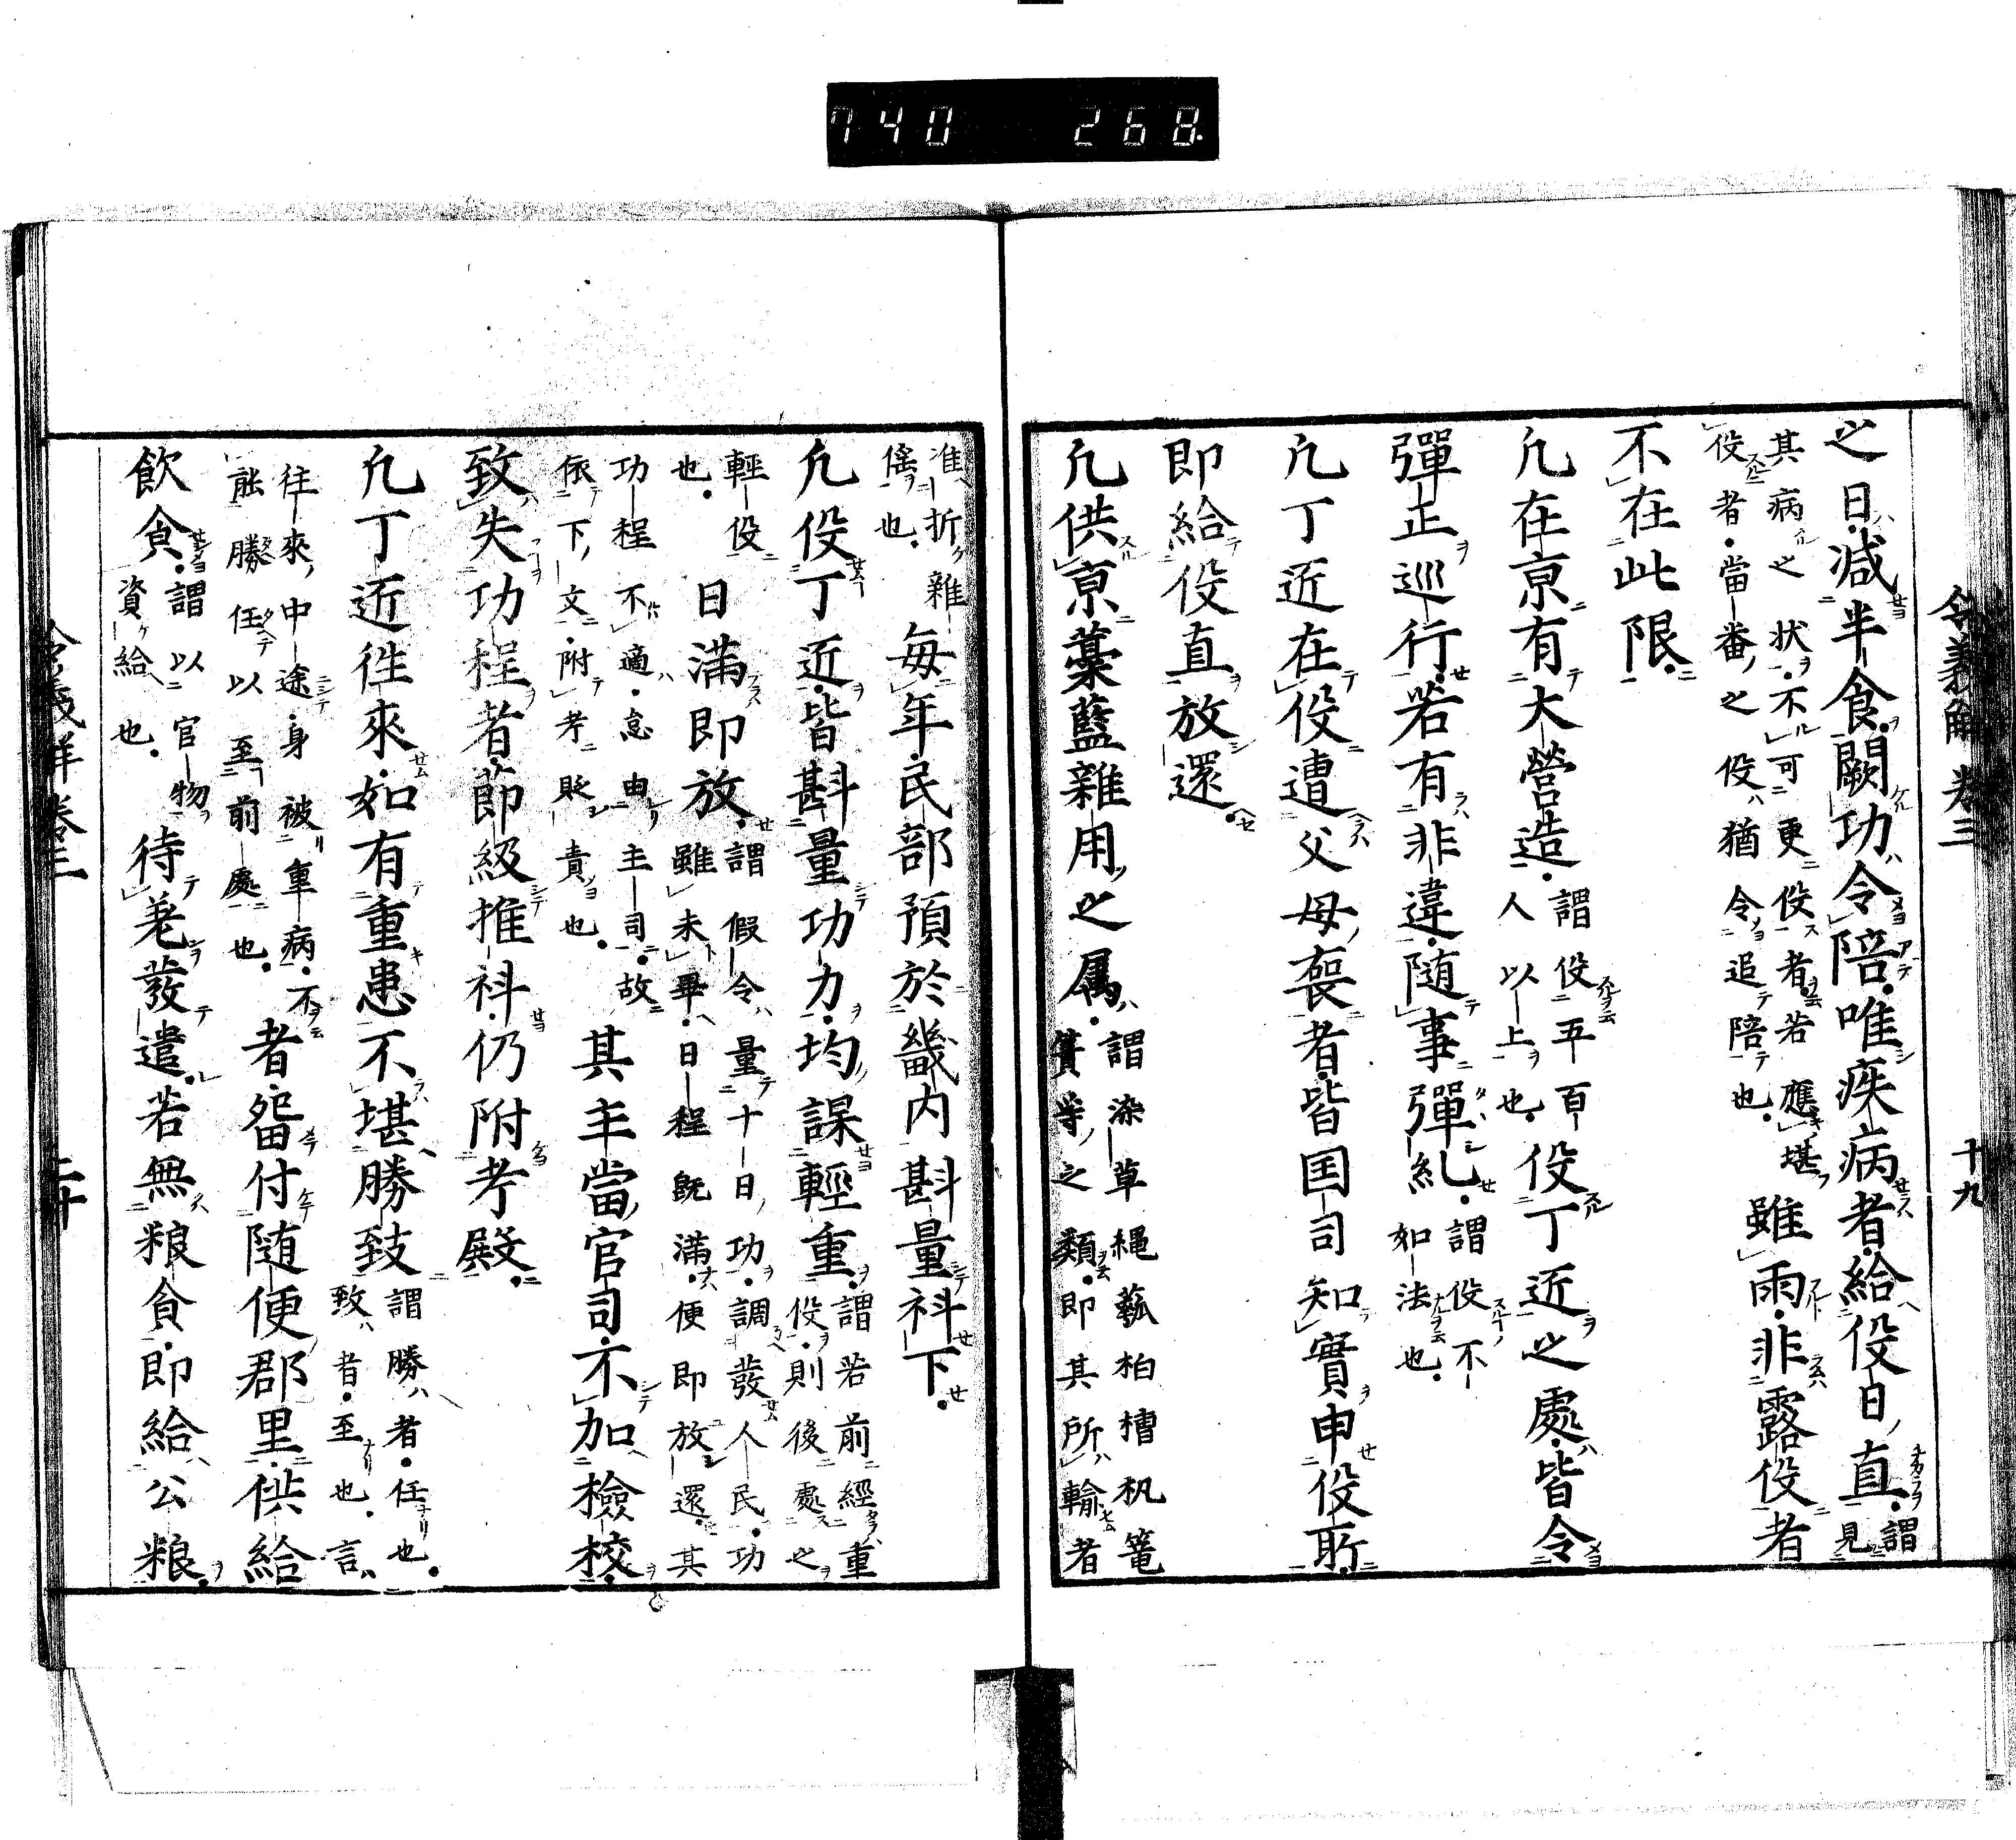 740 268
令義解 卷三 十九
之日減半食闕功令陪唯疾病者給役日直謂見
其病之狀不可更役者若應堪
役者當番之役猶令追陪也
雖雨非露役者
不在此限
凡在京有大營造謂役五百
人以上也
役丁近之處皆令
彈正巡行若有非違随事彈糺謂役不
如法也
凡丁近在役遭父母喪者皆国司知實申役所
即給役直放還
凡供京藁藍雜用之属謂染草縄蓏柏槽杋篭
簣等之類即其所輸者
准折雜
徭也
每年民部預於畿内斟量科下
凡役丁近皆斟量功力均課輕重謂若前經重
役則後處之
輕役
也
日満即放謂假令量十日功調發人民功
雖未畢日程既満便即放還其
功程不適怠由主司故
依下文附考貶責也
其主當官司不加檢校
致失功程者節級推科仍附考殿
凡丁近徃來如有重患不堪勝致謂勝者任也
致者至也言
往來中途身被重病不
能勝任以至前處也
者留付随便郡里供給
飲食謂以官物
資給也
待差發遣若無粮食即給公粮
令義解 卷三 二十